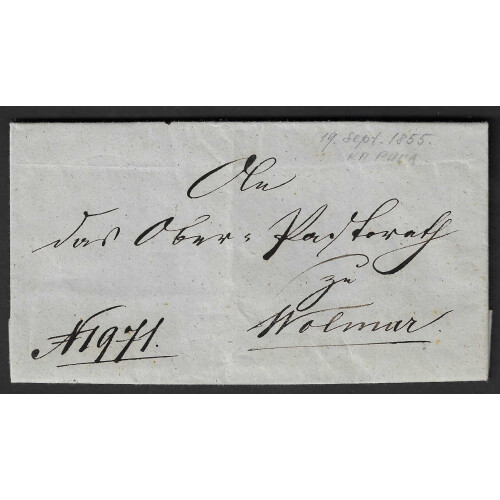 19. Sept. 1855.
КП РИГА
An
das Ober-Pastorath
zu
Wolmar.
N 1971.